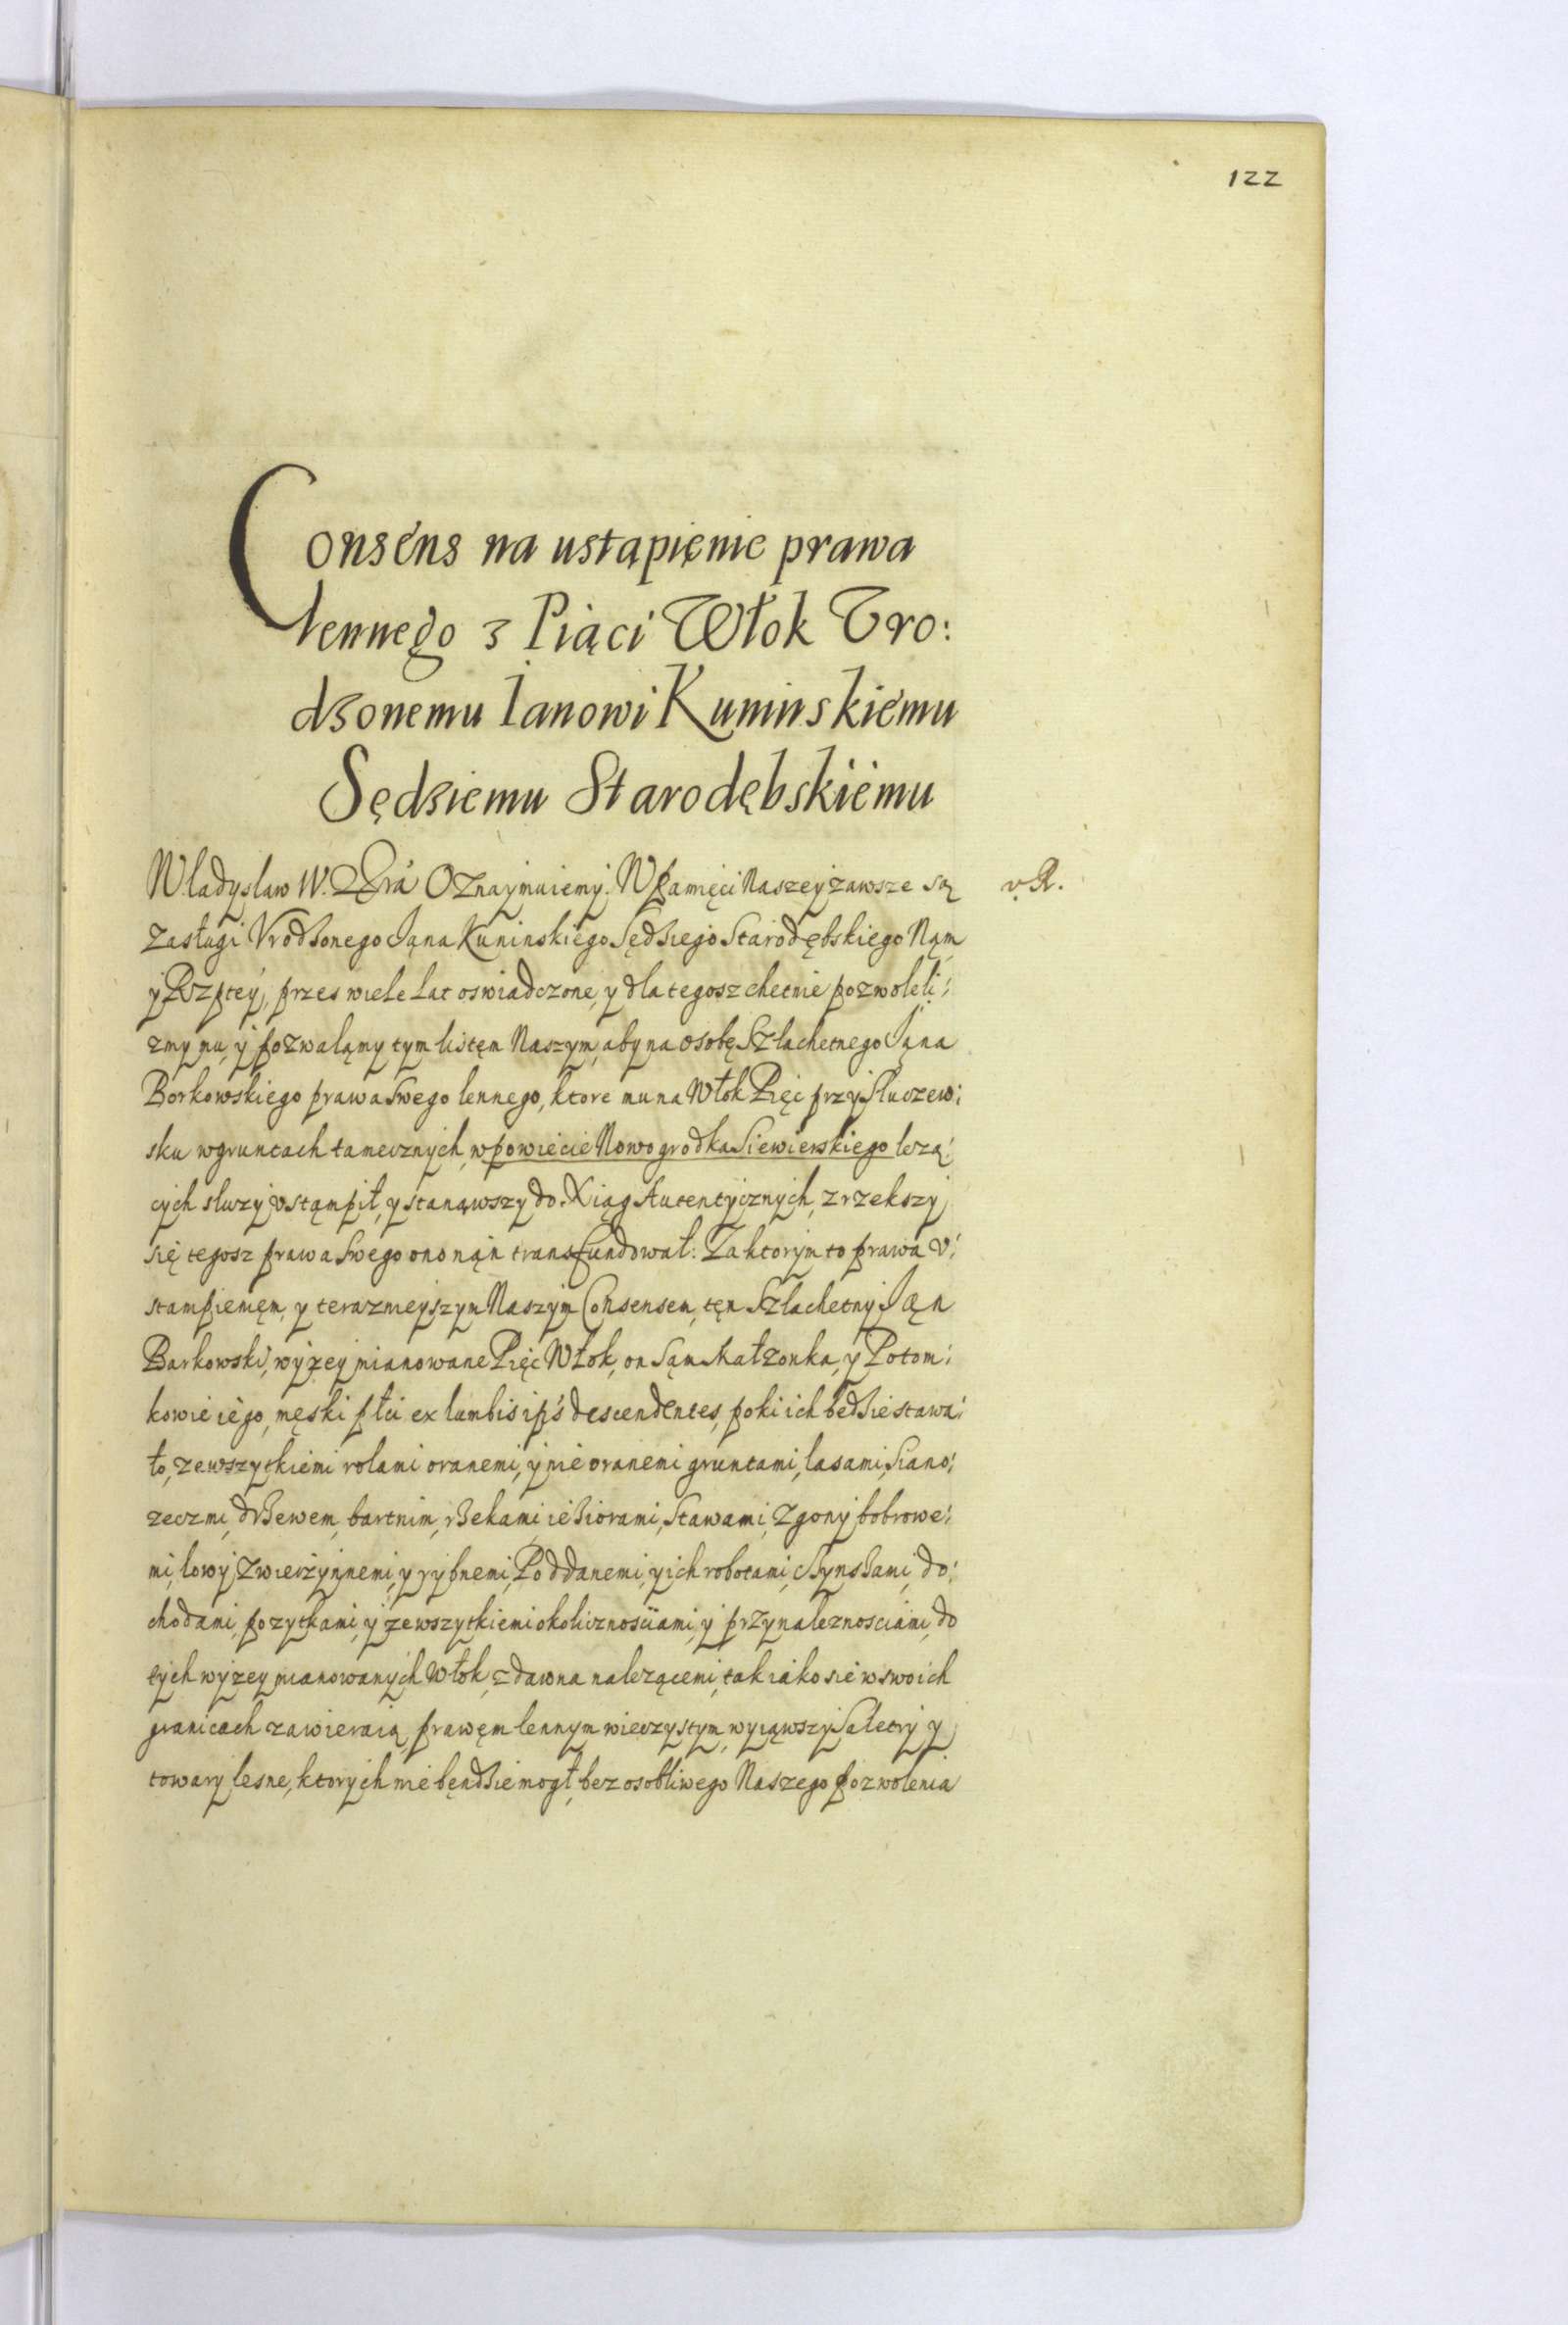 122
Consens na ustąpięnie prawa
lennego z Piąci Włok Vro:
dzonemu Ianowi Kuninskiemu
Sędziemu Starodębskiemu
Władysław IV. Oznaymuiemy. W pamięci Naszey zawsze są
v. R.
zasługi Vrodzonego Jąna Kuninskiego Sędziego Starodębskiego Nąm
y Rzptey, przes wiele lat oswiadczone, y dla tegosz chetnie pozwoleli:
zmy mu, y pozwaląmy tym listęm Naszym, aby na osobę Szlachetnego Jąna
Borkowskiego prawa swego lennego, ktore mu na Włok Pięc przy Słuczew:
sku w gruntach tamecznych, w powiecie Nowogrodka Siewierskiego leżą:
cych służy vstąmpił, y stanąwszy do Xiąg Autentycznych, zrzekszy
się tegosz prawa swego ono nąń transfundował: Za ktorym to prawa v:
stampięnięm, y teraznieyszym Naszym Consensem, tęn Szlachetny Jąn
Barkowski, wyzey mianowane Pięc Włok, on sąm Małzonka, y Potom:
kowie iego, męski płci ex lumbis ips descendentes, poki ich będzie stawa:
ło, zewszytkiemi rolami oranemi, y nie oranemi gruntami, lasami, Siano:
zeczmi, drzewem, bartnim, rzekami, ieziorami, Stawami, Zgony bobrowe:
mi, łowy zwierżynnemi, y rybnemi, Poddanemi, y ich robotami, czynszami, do:
chodami, pozytkami, y zewszytkiemi okolicznosciami, y przynaleznosciami, do
tych wyzey mianowanych Włok, z dawna nalezącemi, tak iako się w swoich
granicach zawieraią, prawęm lennym wieczystym, wyiąwszy Saletry y
towary lesne, ktorych nie bęndzie mogł, bez osobliwego Naszego pozwolenia